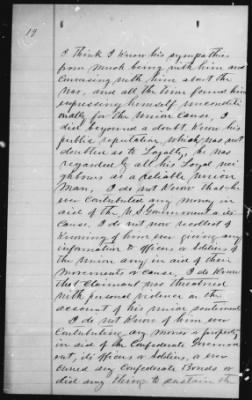 19
I think I know his sympathies
from much being with him and
conversing with him about the
war, and all the time found him
expressing himself uncondit-
ionally for the Union Cause, I
did beyound a doubt know his
public reputation, which was not
doubted as to Loyalty, he was
regarded by all his Loyal nei
ghbours as a reliable Union
Man, I do not know that he
ever contributed any money in
aid of the U.S. Government or its
Cause, I do not now recollect of
knowing of him ever giving any
information to officers or soldiers of
the Union army in aid of their
movements or cause, I do know
that Claimant was threatened
with personal violence on the
account of his union sentiment
I do not know of him ever
contributing any money or property
in aid of the Confederate Governm
ent, its officers or soldiers, or ever
owned any Confederate Bonds or
did any thing to sustain the